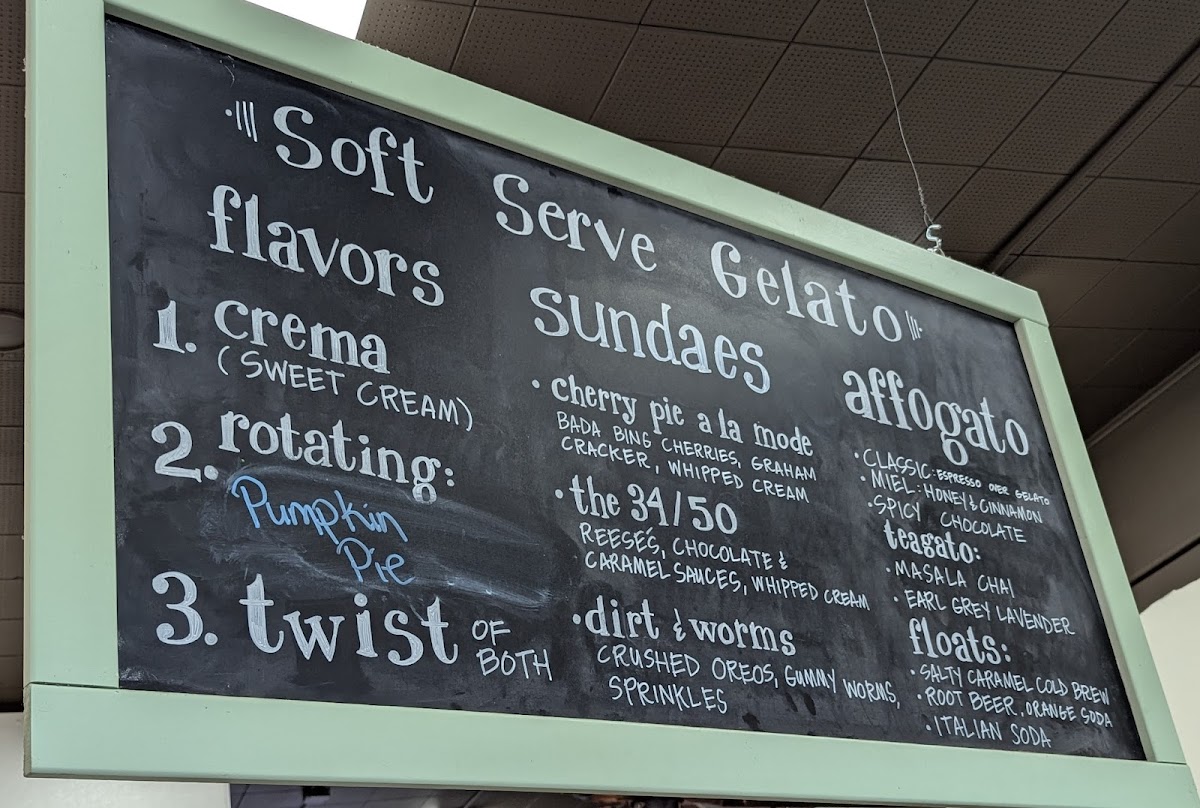 Soft Serve Gelato
flavors
1. crema
(SWEET CREAM)
2. rotating:
Pumpkin
Pie
3. twist OF
BOTH
sundaes
• cherry pie a la mode
BADA BING CHERRIES, GRAHAM
CRACKER, WHIPPED CREAM
• the 34/50
REESE'S, CHOCOLATE &
CARAMEL SAUCES, WHIPPED CREAM
• dirt & worms
CRUSHED OREOS, GUMMY WORMS,
SPRINKLES
affogato
• CLASSIC: ESPRESSO OVER GELATO
• MIEL: HONEY & CINNAMON
• SPICY CHOCOLATE
teagato:
• MASALA CHAI
• EARL GREY LAVENDER
floats:
• SALTY CARAMEL COLD BREW
• ROOT BEER, ORANGE SODA
• ITALIAN SODA